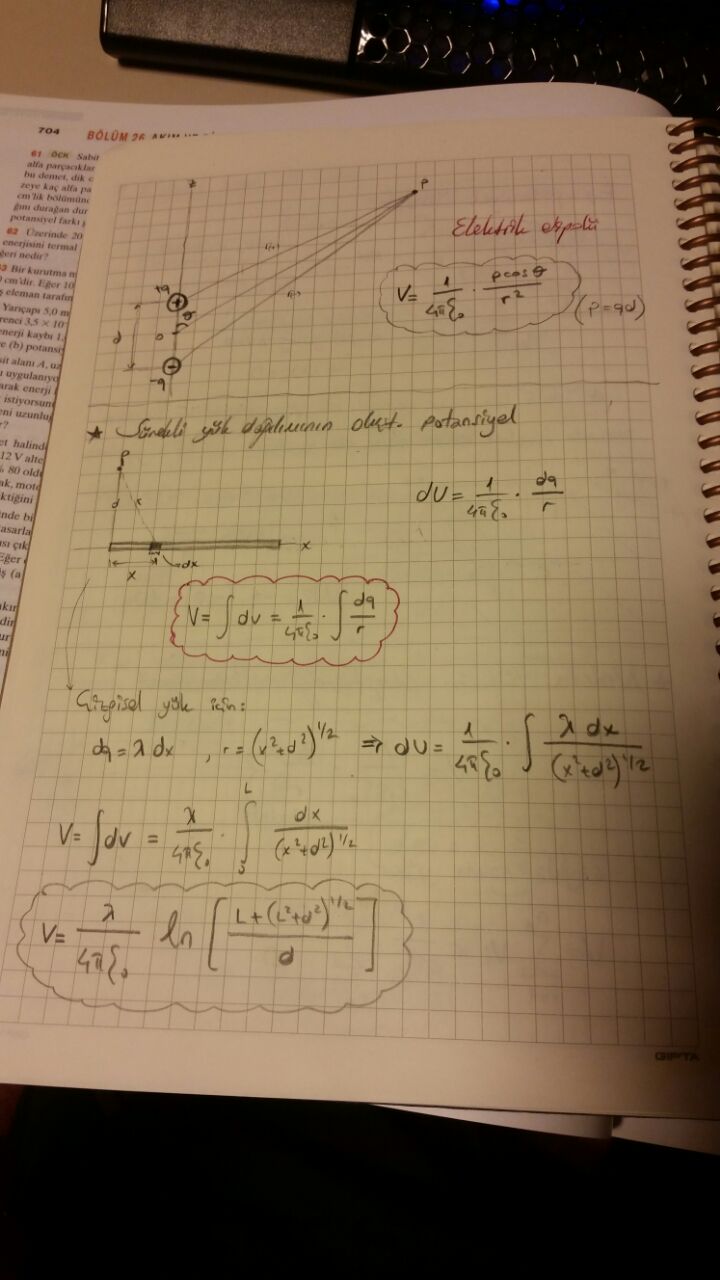 704 BÖLÜM 26
61 ÖÇK Sabit
alfa parçacıklar
bu demet, dik
zeye kaç alfa pa
cm'lik bölümün
ğını durağan dur
potansiyel farkı
62 Üzerinde 20
enerjisini termal
ğeri nedir?
Bir kurutma m
cm'dir. Eğer 10
eleman tarafın
Yarıçapı 5,0 m
3,5 × 10
enerji kaybı 1,
ve (b) potansiy
alanı A, uz
uygulanıyo
arak enerji
istiyorsun
uzunluğ
halind
12 V alte
% 80 oldu
z
P
r(+)
r(-)
+q
+
θ
d
0
-q
Elektrik dipolü
V = 1/4πξ₀ · pcosθ/r²
(p=qd)
★ Sürekli yük dağılımının oluşt. potansiyel
P
d
r
x
dx
x
dV = 1/4πξ₀ · dq/r
V = ∫dv = 1/4πξ₀ · ∫dq/r
Çizgisel yük için:
dq = λ dx , r = (x²+d²)^1/2 ⇒ dV = 1/4πξ₀ · ∫ λ dx/(x²+d²)^1/2
V = ∫dv = λ/4πξ₀ · ∫ L dx/(x²+d²)^1/2
V = λ/4πξ₀ ln [L+(L²+d²)^1/2/d]
GIPTA